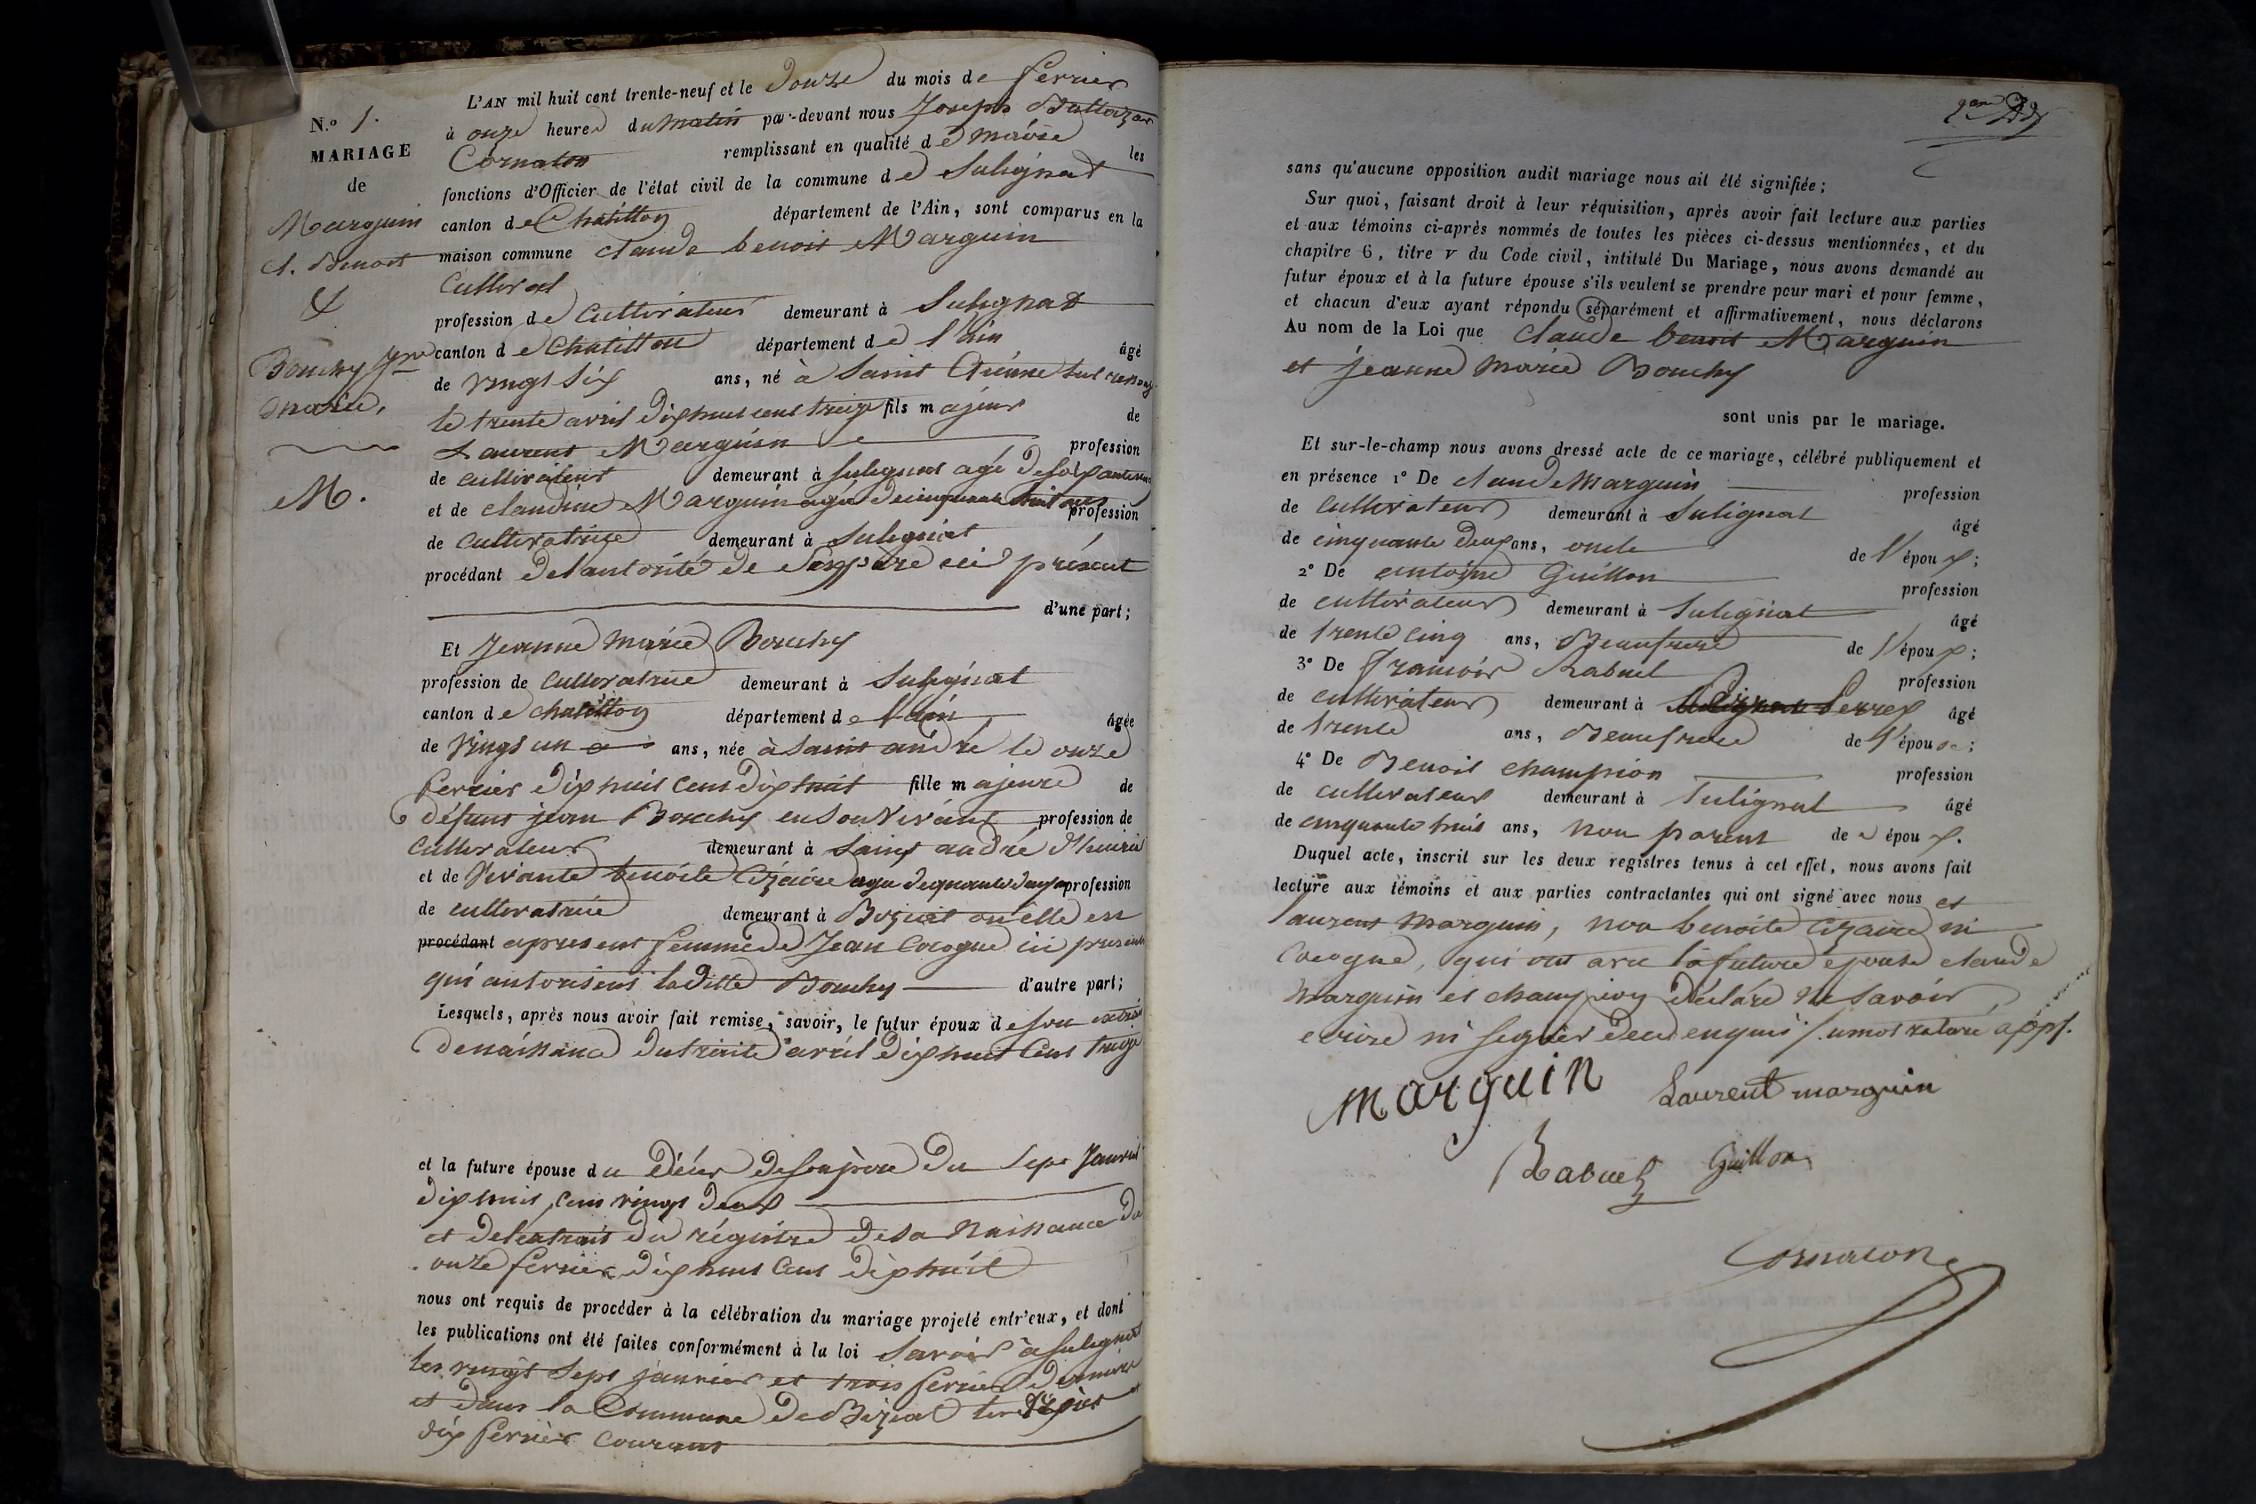 N.º 1.
MARIAGE
de
Marguin
Cl. Benoit
&
Bouchy Jne
marie,
M.
L'AN mil huit cent trente-neuf et le Douze du mois de fevrier
à onze heures du matin par-devant nous Joseph Baltazar
Cornaton remplissant en qualité de maire les
fonctions d'Officier de l'état civil de la commune de Sulignat
canton de Chatillon département de l'Ain, sont comparus en la
maison commune claude benoit Marguin
profession de cultivateur demeurant à Sulignat
canton de Chatillon département de l'ain âgé
de vingt six ans, né à Saint Etienne sur
le trente avril dix huit cent treize fils majeur de
Laurent Marguin profession
de cultivateur demeurant à Sulignat agé de soixante
et de claudine Marguin agée de cinquante huit ans profession
de cultivatrice demeurant à Sulignat
procédant de l'autorité de Son père ici présent
d'une part;
Et Jeanne Marie Bouchy
profession de cultivatrice demeurant à Sulignat
canton de chatillon département de l'ain, âgée
de vingt un ans, née à Saint andré le onze
fevrier dix huit cent dix huit fille majeure de
défunt jean Bouchy en son vivant profession de
cultivateur demeurant à Saint andré
et de vivante benoite Cizaire agée profession
de cultivatrice demeurant à où elle est
procédant apresent femme de Jean Cocogne ici present
qui autorisent la ditte Bouchy d'autre part;
Lesquels, après nous avoir fait remise, savoir, le futur époux de son extrait
de naissance du trente avril dix huit cent treize
et la future épouse du décès de son père du Sept Janvier
dix huit cent vingt deux
et de l'extrait du régistre de sa naissance du
onze fevrier dix huit cent dix huit
nous ont requis de procéder à la célébration du mariage projeté entr'eux, et dont
les publications ont été faites conformément à la loi savoir à Sulignat
les vingt sept janvier et trois fevrier derniers
et dans la commune de
dix fevrier courant
sans qu'aucune opposition audit mariage nous ait été signifiée;
Sur quoi, faisant droit à leur réquisition, après avoir fait lecture aux parties
et aux témoins ci-après nommés de toutes les pièces ci-dessus mentionnées, et du
chapitre 6, titre V du Code civil, intitulé Du Mariage, nous avons demandé au
futur époux et à la future épouse s'ils veulent se prendre pour mari et pour femme,
et chacun d'eux ayant répondu séparément et affirmativement, nous déclarons
Au nom de la Loi que claude benoit Marguin
et jeanne Marie Bouchy
sont unis par le mariage.
Et sur-le-champ nous avons dressé acte de ce mariage, célébré publiquement et
en présence 1º De claude Marguin profession
de cultivateur demeurant à Sulignat âgé
de cinquante deux ans, oncle de l'époux;
2º De antoine Guillon profession
de cultivateur demeurant à Sulignat âgé
de trente cinq ans, Beaufrere de l'époux;
3º De francois Rabuel profession
de cultivateur demeurant à Sulignat Perrex âgé
de trente ans, Beaufrere de l'épouse;
4º De Benoit champion profession
de cultivateur demeurant à Sulignat âgé
de cinquante trois ans, non parent de époux.
Duquel acte, inscrit sur les deux registres tenus à cet effet, nous avons fait
lecture aux témoins et aux parties contractantes qui ont signé avec nous et
laurent Marguin, non benoite Cizaire ni
Cocogne, qui ont avec la future epouse claude
Marguin et champion déclaré ne savoir
ecrire ni signer de ce enquis /. un mot raturé app.
marguin Laurent marguin
Rabuel Guillon
Cornaton